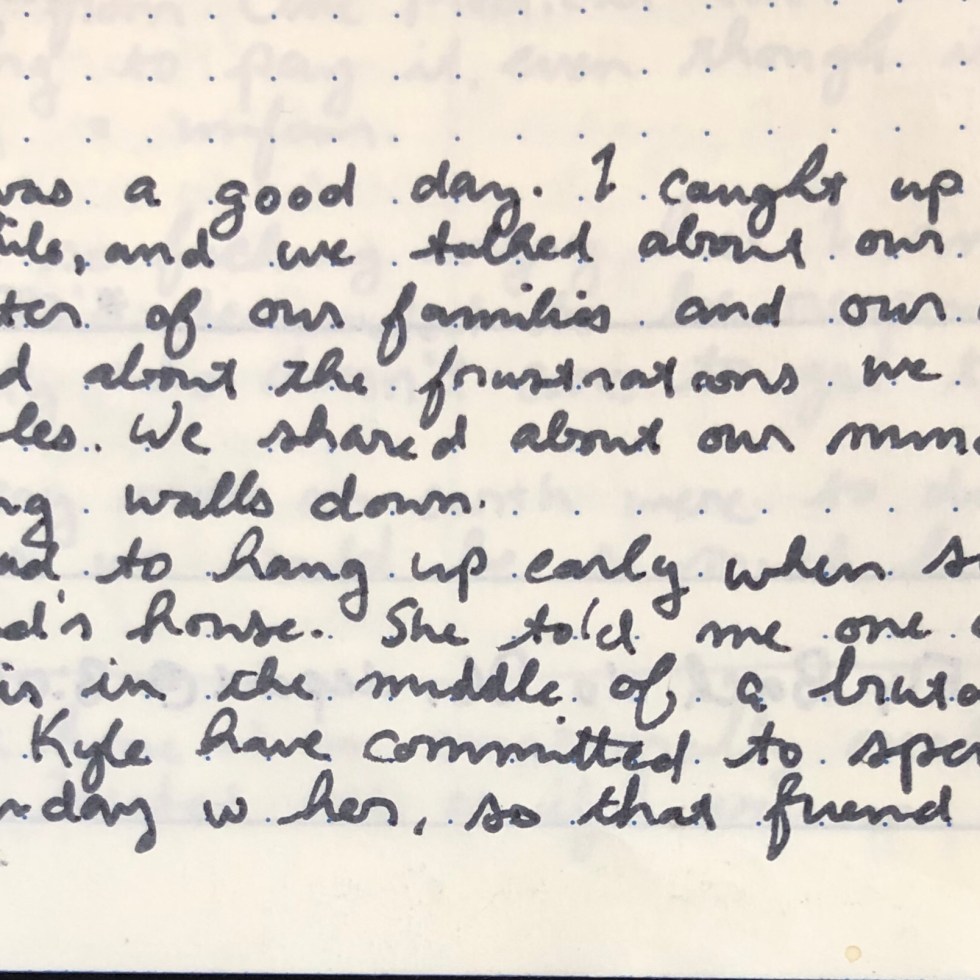 was a good day. I caught up
and we talked about our
of our families and our
about the frustrations we
We shared about our
walls down.
to hang up early when
house. She told me one
in the middle of a
Kyle have committed to
w her, so that friend